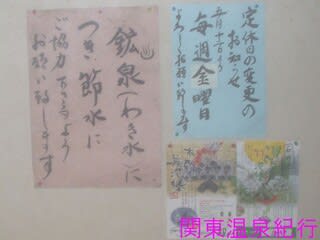 定休日の変更の
お知らせ
五月十一日より
毎週金曜日
よろしくお願い致します
鉱泉(わき水)に
つき節水に
ご協力下さるよう
お願い致します
関東温泉紀行